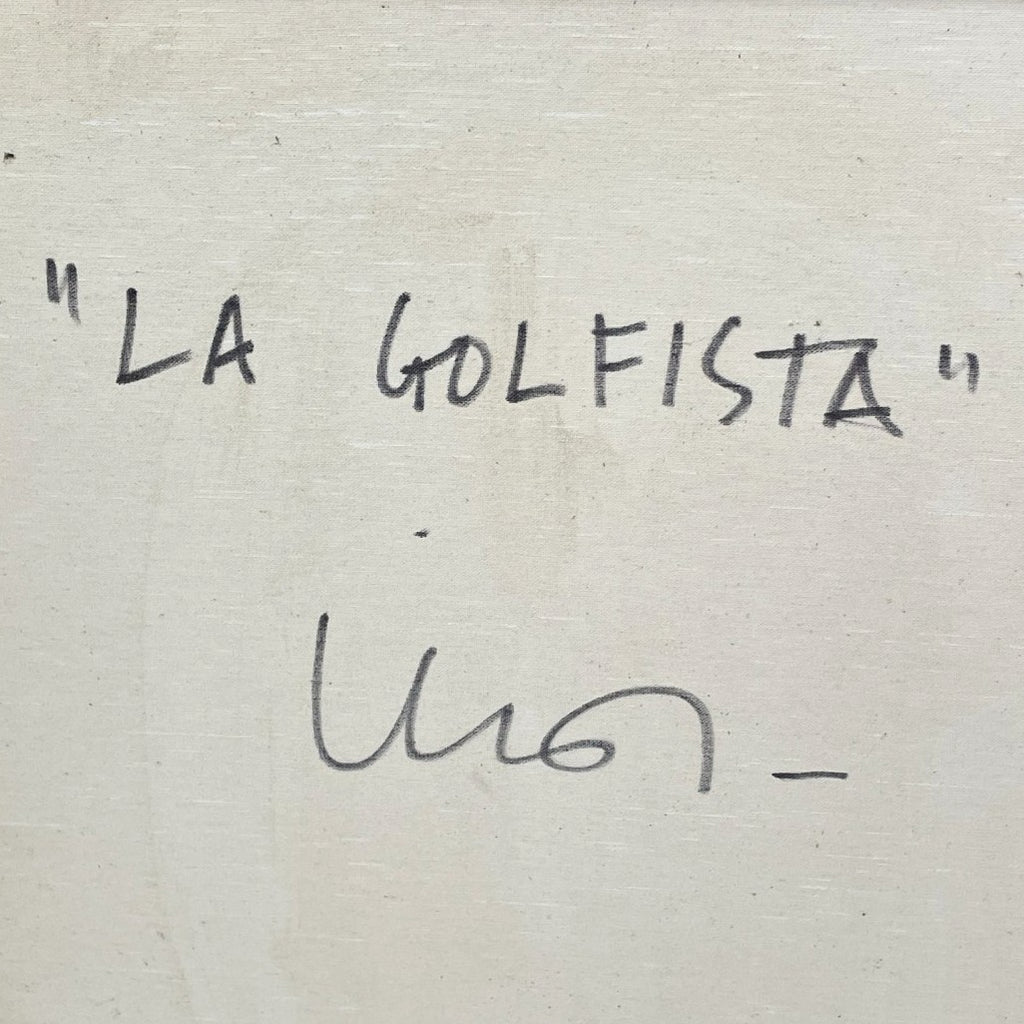 "LA GOLFISTA"